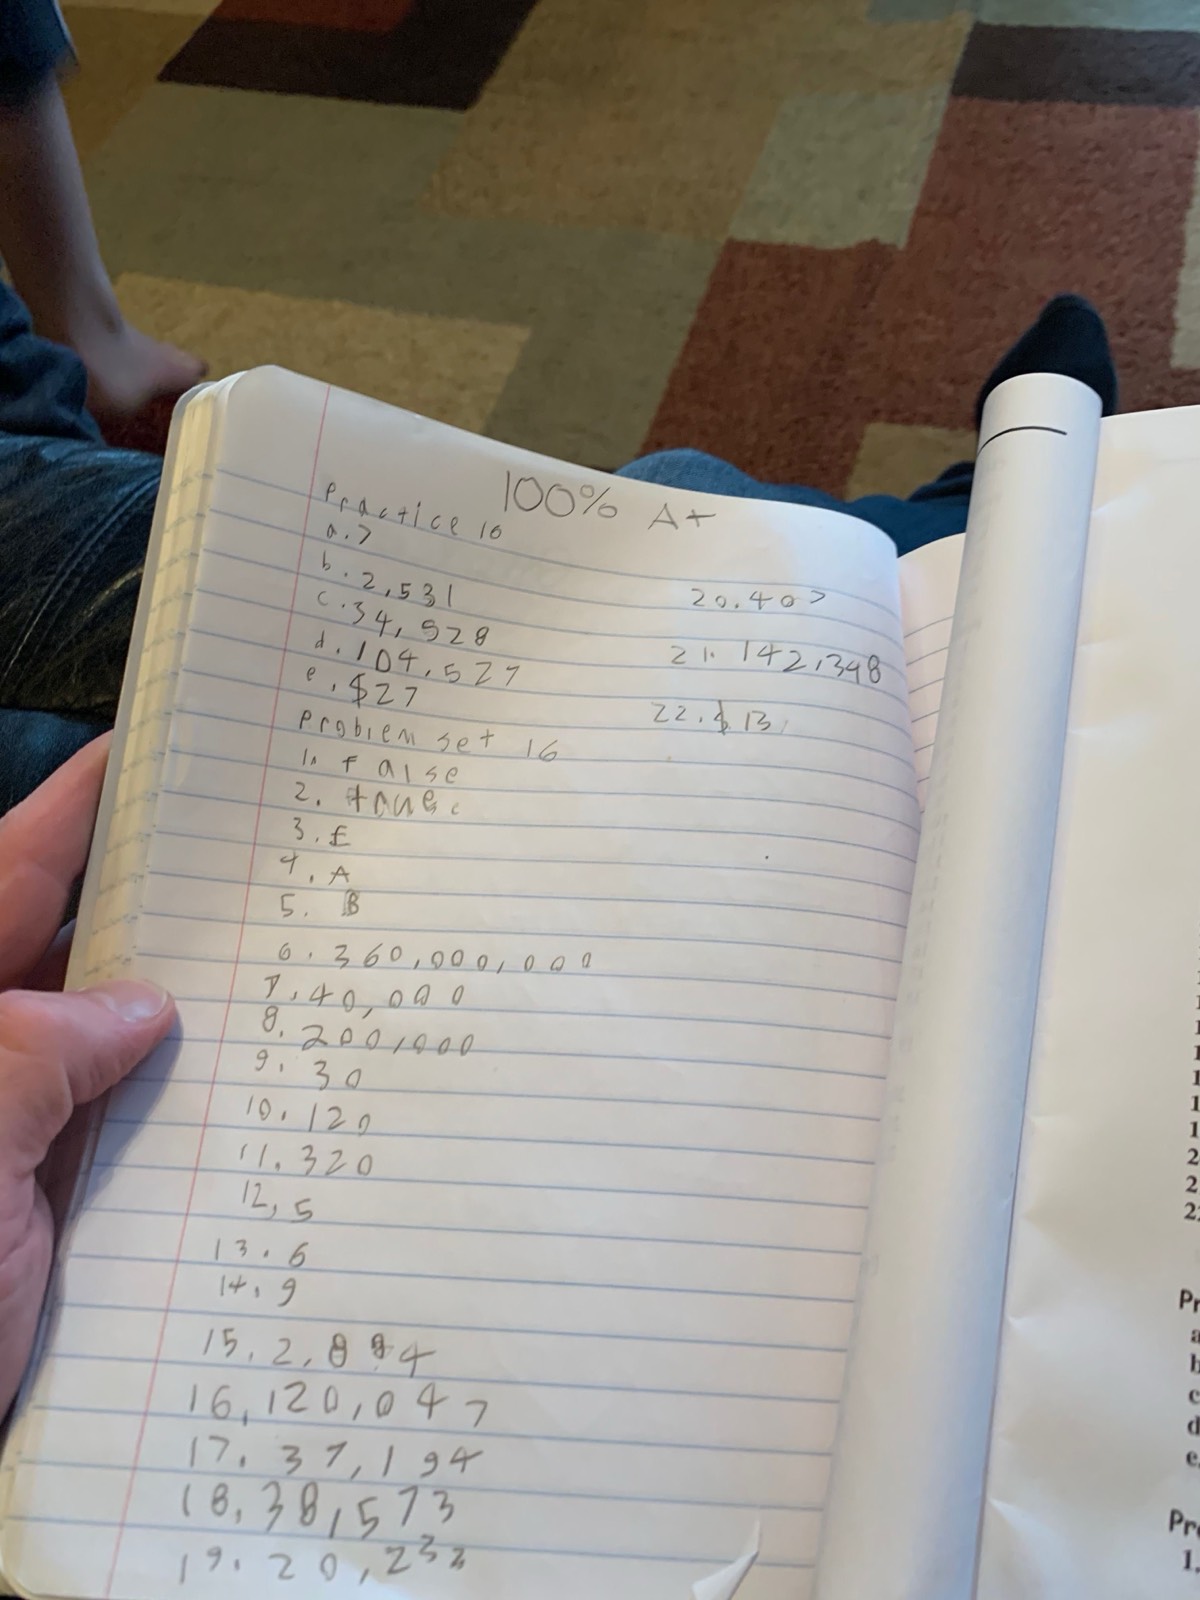 100% A+
Practice 16
a. 7
b. 2,531
c. 34,528
d. 104,527
e. $27
Problem set 16
1. False
2. true.
3. E
4. A
5. B
6. 360,000,000
7. 40,000
8. 200,000
9. 30
10. 120
11. 320
12, 5
13. 6
14. 9
15. 2,884
16, 120,047
17. 37,194
18, 38,573
19. 20,232
20. 407
21. 142,348
22. $13
1
1
1
1
1
2
2
22
Pr
a
b
c
d
e.
Pro
1.